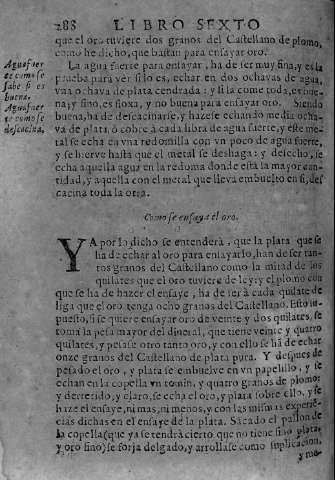 288 LIBRO SEXTO
que el oro tuviere dos granos del Castellano de plomo,
como he dicho, que bastan para ensayar oro.
Agua fuer
te como se
sabe si es
buena.
Agua fuer
te como se
descacina.
La agua fuerte para ensayar, ha de ser muy fina, y es la
prueba para ver si lo es, echar en dos ochavas de agua,
vna ochava de plata cendrada: y si la come toda, es bue-
na; y sino, es floxa, y no buena para ensayar oro. Siendo
buena, ha de descacinarse, y hazese echando media ocha-
va de plata, ò cobre à cada libra de agua fuerte, y este me-
tal se echa en vna redomilla con vn poco de agua fuerte,
y se hierve hasta que el metal se deshaga: y deshecho, se
echa aquella agua en la redoma donde està la mayor can-
tidad, y aquella con el metal que lleva embuelto en si, des
cacina toda la otra.
Como se ensaya el oro.
YA por lo dicho se entenderà, que la plata que se
ha de echar al oro para ensayarlo, han de ser tan-
tos granos del Castellano como la mitad de los
quilates que el oro tuviere de ley; y el plomo con
que se ha de hazer el ensaye, ha de ser à cada quilate de
liga que el oro tenga ocho granos del Castellano. Esto su-
puesto, si se quiere ensayar oro de veinte y dos quilates, se
toma la pesa mayor del dineral, que tiene veinte y quatro
quilates, y pesase otro tanto oro, y con ello se ha de echar
onze granos del Castellano de plata pura. Y despues de
pesado el oro, y plata se embuelve en vn papelillo, y se
echan en la copella vn tomin, y quatro granos de plomo:
y derretido, y claro, se echa el oro, y plata sobre ello, y se
haze el ensaye, ni mas, ni menos, y con las mismas experie-
cias dichas en el ensaye de la plata. Sacado el pallon de
la copella (que ya se tendrà cierto que no tiene sino plata,
y oro fino) se forja delgado, y arrollase como suplicacion,